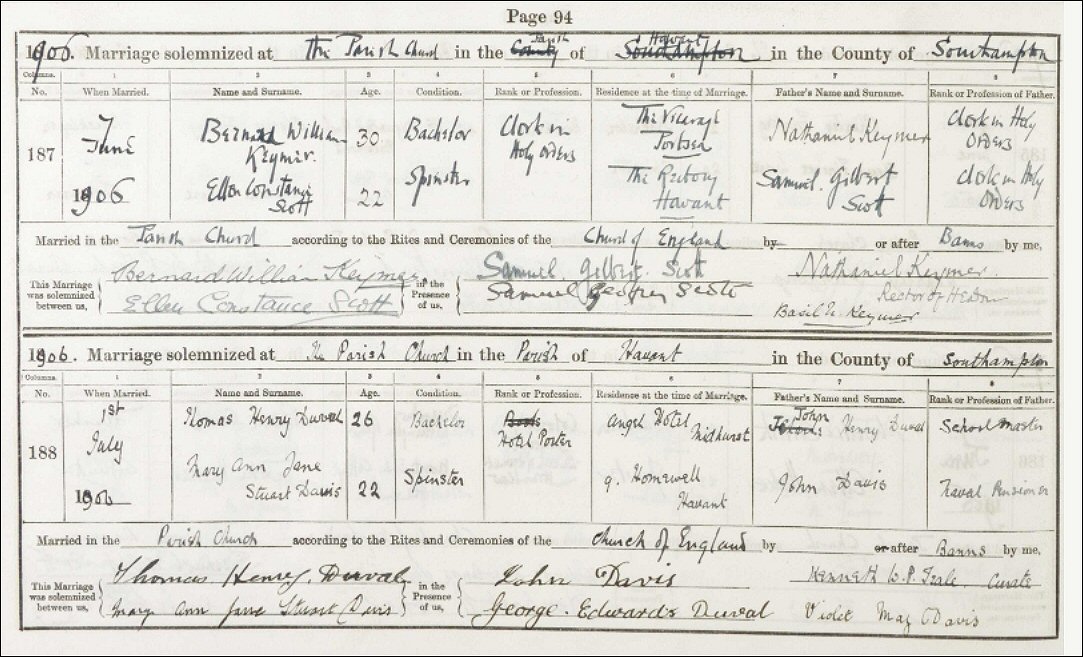 Page 94
1906. Marriage solemnized at the Parish Church in the County Parish of Southampton Havant in the County of Southampton
Columns. 1 2 3 4 5 6 7 8
No. When Married. Name and Surname. Age. Condition. Rank or Profession. Residence at the time of Marriage. Father's Name and Surname. Rank or Profession of Father.
187 June 1906
Bernard William Keymer. 30 Bachelor Clerk in Holy Orders The Vicarage Portsea Nathaniel Keymer Clerk in Holy Orders
Ellen Constance Scott 22 Spinster The Rectory Havant Samuel Gilbert Scott Clerk in Holy Orders
Married in the Parish Church according to the Rites and Ceremonies of the Church of England by or after Banns by me,
This Marriage was solemnized between us, Bernard William Keymer. in the Presence of us, Samuel Gilbert Scott Nathaniel Keymer.
Ellen Constance Scott Samuel Geoffrey Scott Rector of Headon
Basil N. Keymer
1906. Marriage solemnized at the Parish Church in the Parish of Havant in the County of Southampton
Columns. 1 2 3 4 5 6 7 8
No. When Married. Name and Surname. Age. Condition. Rank or Profession. Residence at the time of Marriage. Father's Name and Surname. Rank or Profession of Father.
188 1st July 1906
Thomas Henry Duval 26 Bachelor Hotel Porter Angel Hotel Midhurst John Henry Duval School Master
Mary Ann Jane Stuart Davis 22 Spinster 9. Homewell Havant John Davis Naval Pensioner
Married in the Parish Church according to the Rites and Ceremonies of the Church of England by or after Banns by me,
This Marriage was solemnized between us, Thomas Henry Duval in the Presence of us, John Davis Kenneth W.P. Teale. Curate
Mary Ann Jane Stuart Davis George Edwards Duval Violet May Davis